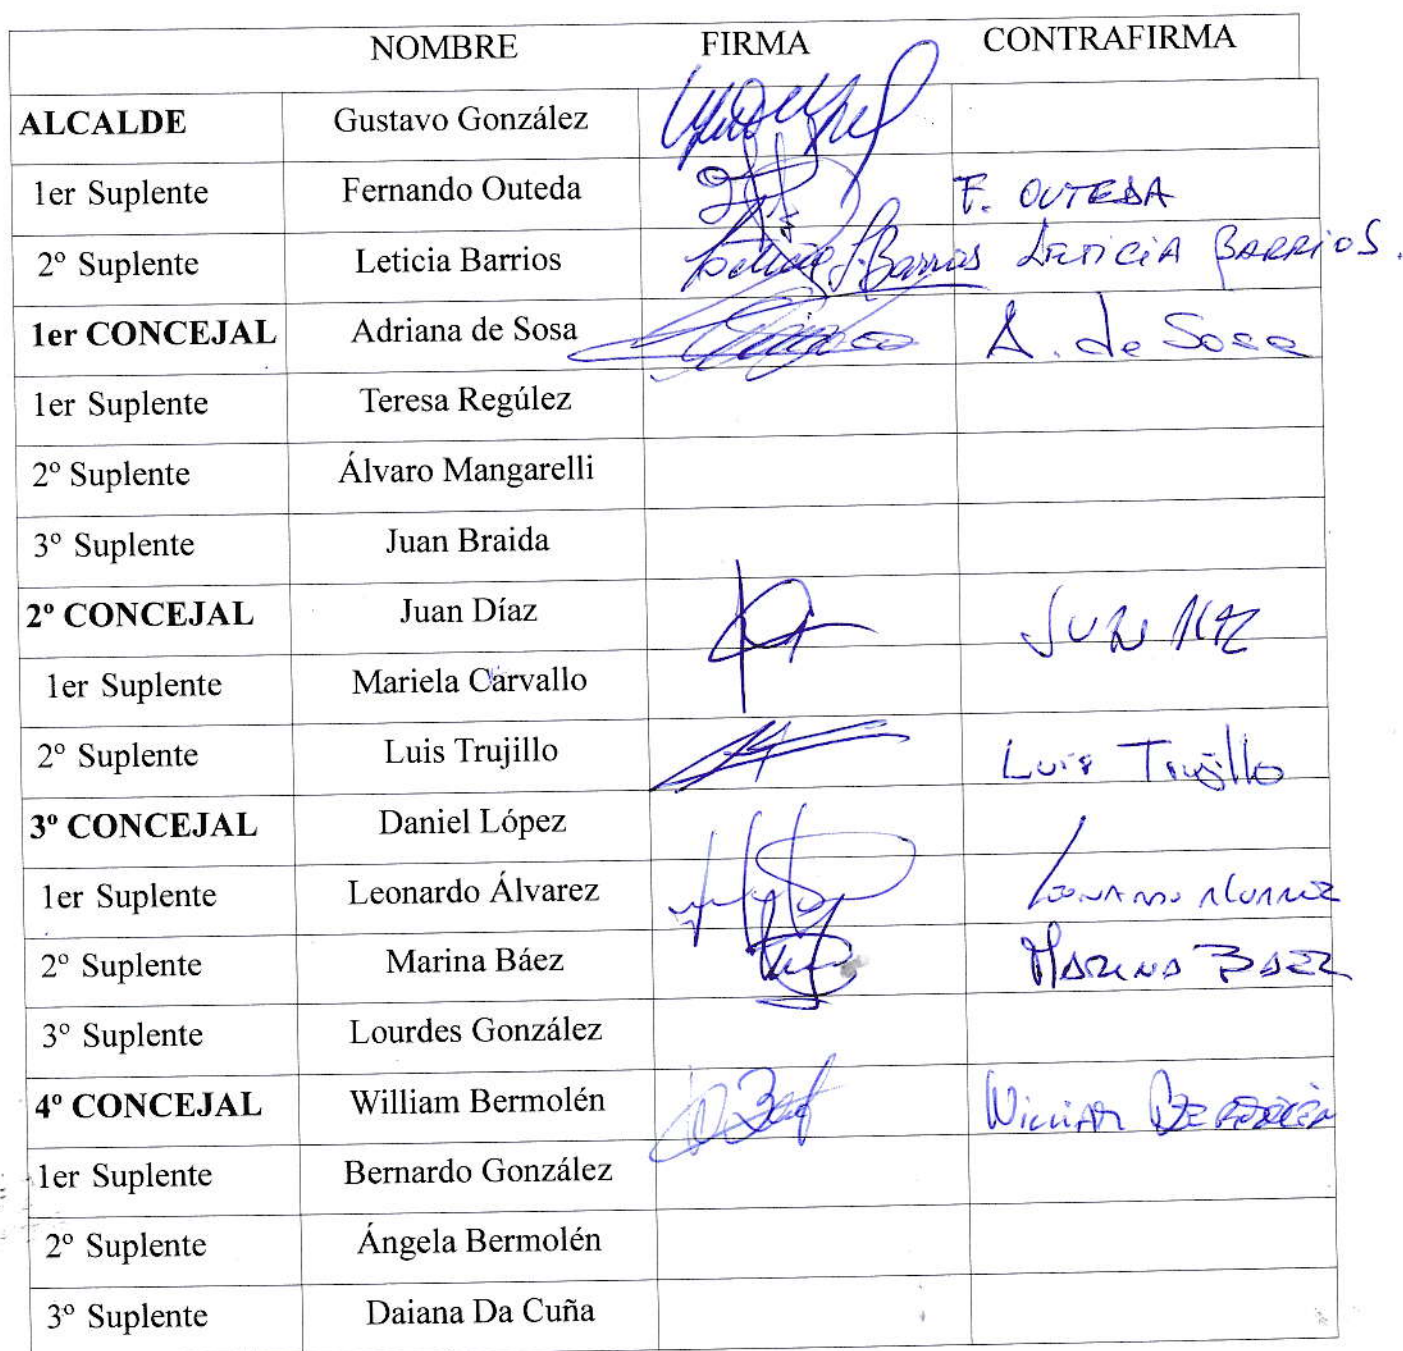 NOMBRE FIRMA CONTRAFIRMA
ALCALDE Gustavo González
1er Suplente Fernando Outeda F. OUTEDA
2º Suplente Leticia Barrios Leticia Barrios LETICIA BARRIOS.
1er CONCEJAL Adriana de Sosa A. de Sosa
1er Suplente Teresa Regúlez
2º Suplente Álvaro Mangarelli
3º Suplente Juan Braida
2º CONCEJAL Juan Díaz JUAN
1er Suplente Mariela Carvallo
2º Suplente Luis Trujillo Luis Trujillo
3º CONCEJAL Daniel López
1er Suplente Leonardo Álvarez LEONARDO ALVAREZ
2º Suplente Marina Báez MARINA BAEZ
3º Suplente Lourdes González
4º CONCEJAL William Bermolén WILLIAM BERMOLEN
1er Suplente Bernardo González
2º Suplente Ángela Bermolén
3º Suplente Daiana Da Cuña